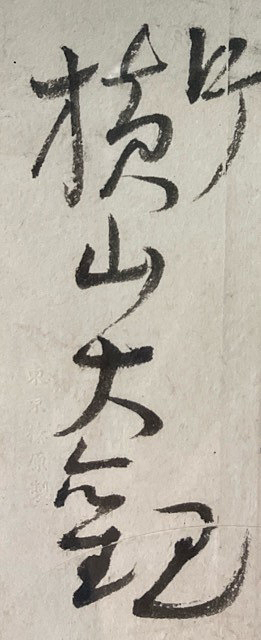 横山大観